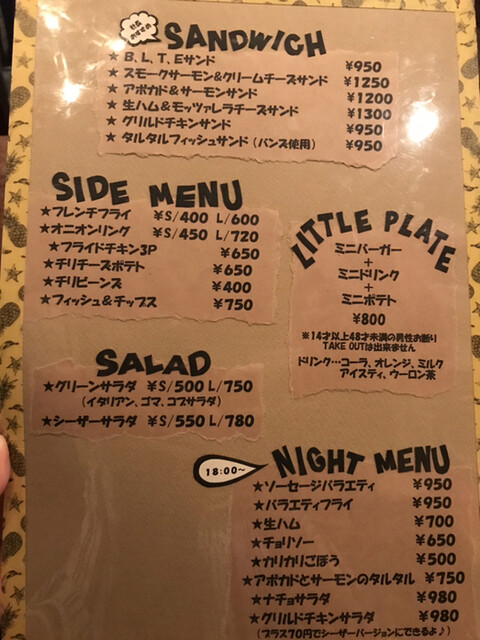 SANDWICH
★ B、L、T、Eサンド ¥950
★ スモークサーモン&クリームチーズサンド ¥1250
★ アボカド&サーモンサンド ¥1200
★ 生ハム&モッツァレラチーズサンド ¥1300
★ グリルドチキンサンド ¥950
★ タルタルフィッシュサンド (バンズ使用) ¥950
SIDE MENU
★フレンチフライ ¥S/400 L/600
★オニオンリング ¥S/450 L/720
★フライドチキン3P ¥650
★チリチーズポテト ¥650
★チリビーンズ ¥400
★フィッシュ&チップス ¥750
LITTLE PLATE
ミニバーガー
+
ミニドリンク
+
ミニポテト
¥800
※14才以上48才未満の男性お断り
TAKE OUTは出来ません
ドリンク…コーラ、オレンジ、ミルク
アイスティ、ウーロン茶
SALAD
★グリーンサラダ ¥S/500 L/750
(イタリアン、ゴマ、コブサラダ)
★シーザーサラダ ¥S/550 L/780
18:00~
NIGHT MENU
★ソーセージバラエティ ¥950
★バラエティフライ ¥950
★生ハム ¥700
★チョリソー ¥650
★カリカリごぼう ¥500
★アボカドとサーモンのタルタル ¥750
★ナチョサラダ ¥980
★グリルドチキンサラダ ¥980
(プラス70円でシーザーバージョンにできるよ♪)